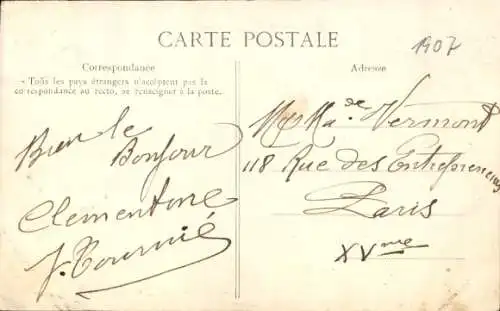 CARTE POSTALE
1907
Correspondance
Tous les pays étrangers n'acceptent pas la
correspondance au recto, se renseigner à la poste.
Bien le
Bonjour
Clementine
Adresse
Mr & Made Vermont
118 Rue des Entrepreneurs
Paris
XVme